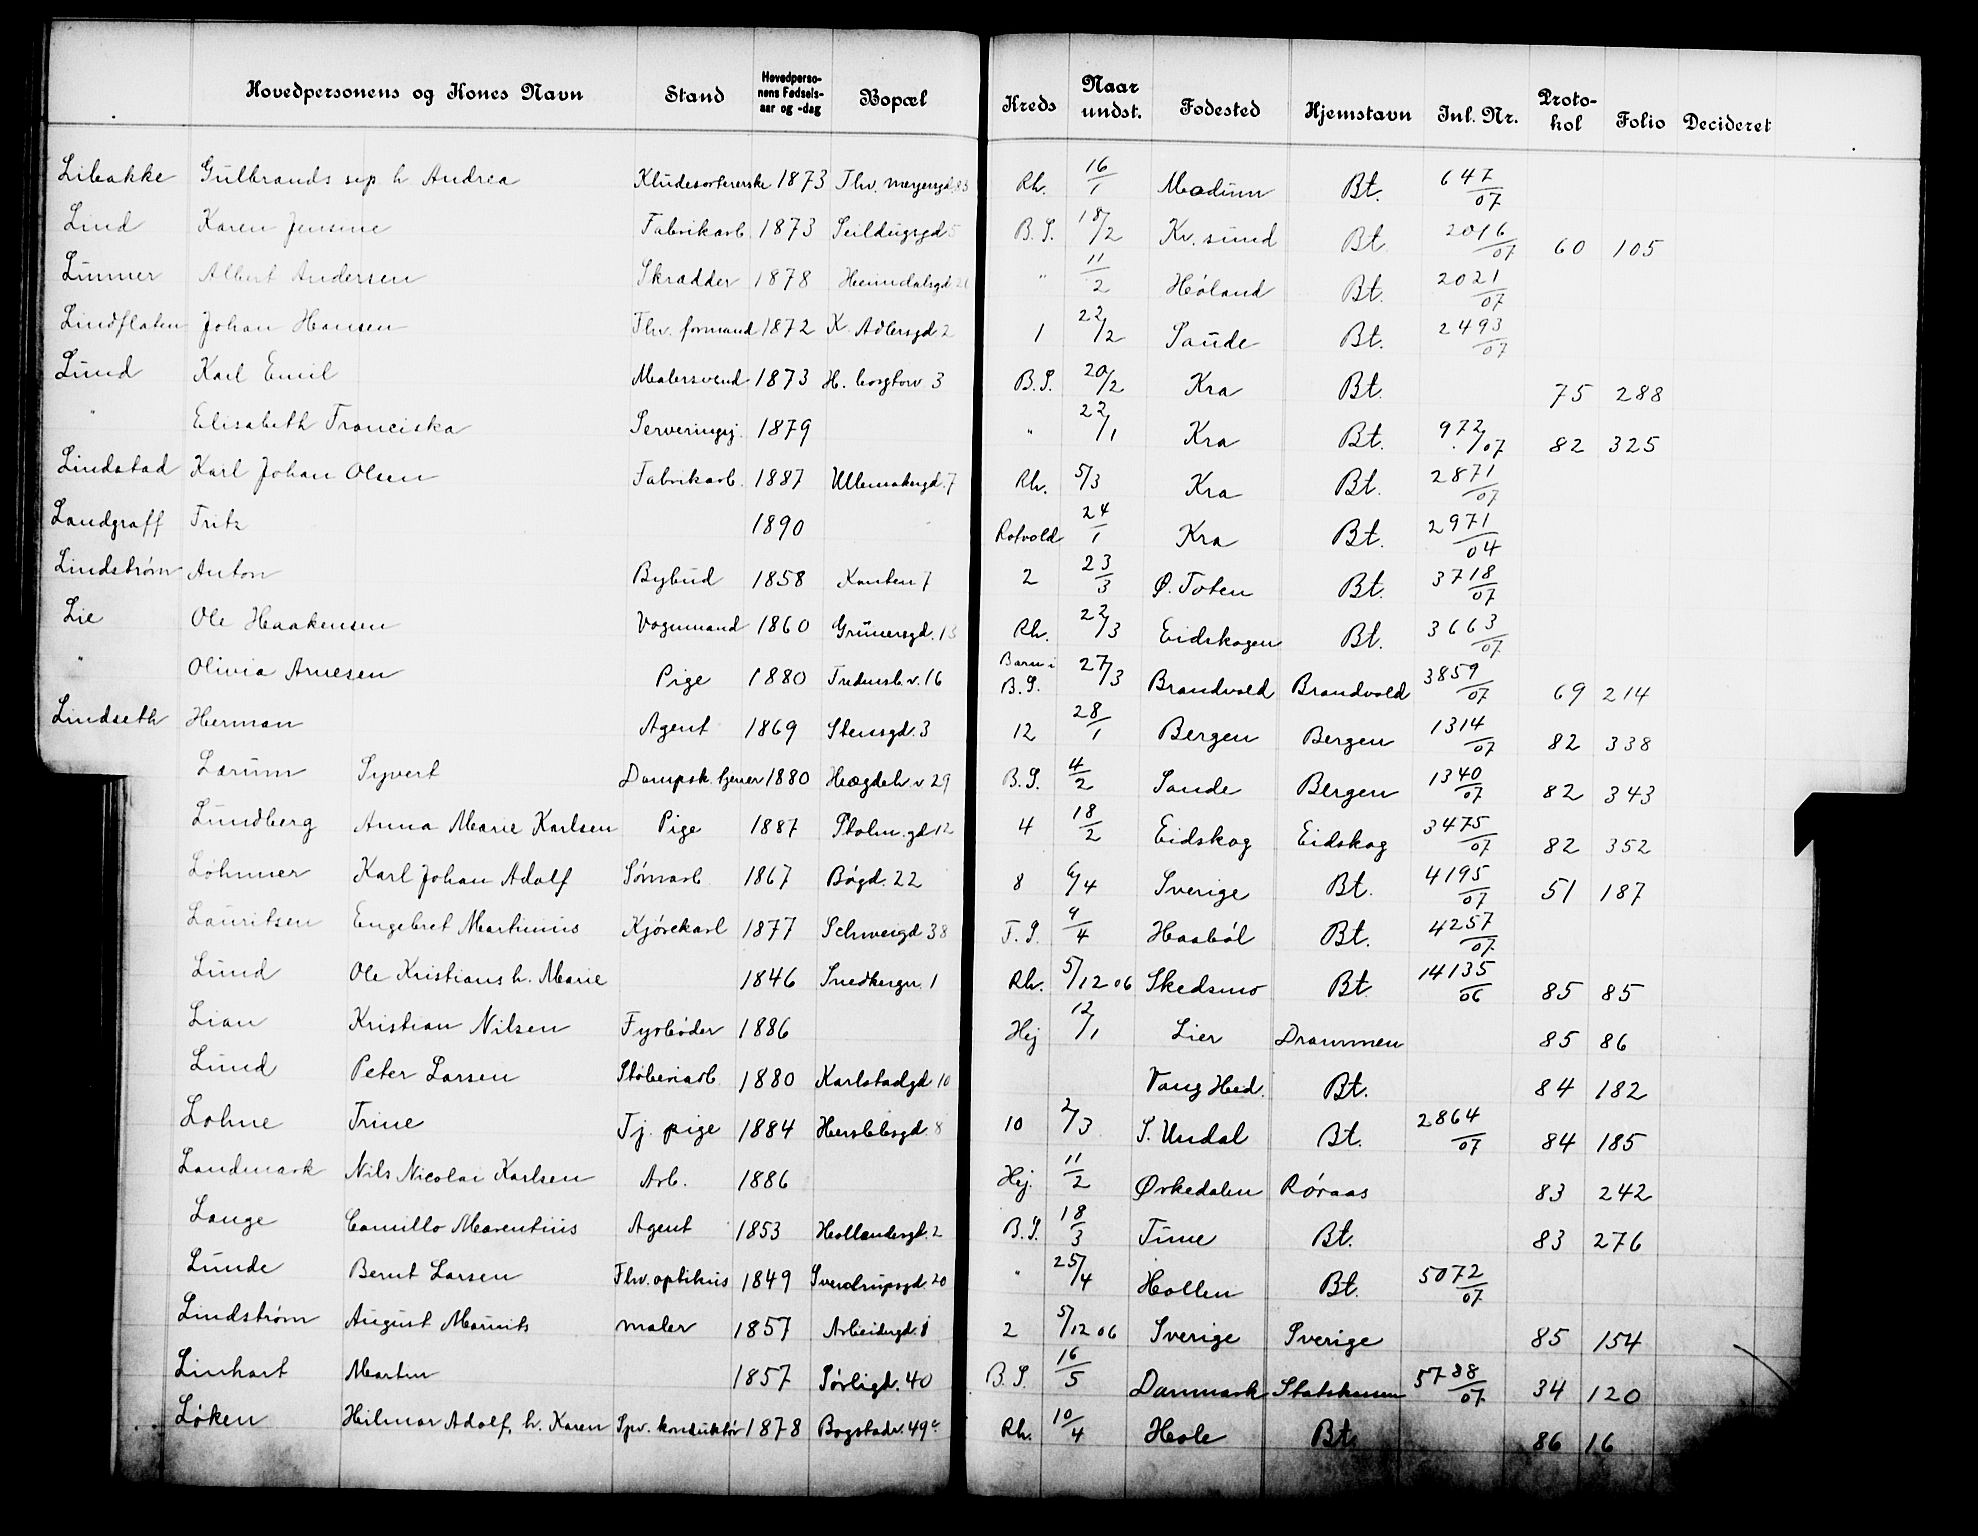 Hovedpersonens og Kones Navn | Stand | Hovedperso-nens Fødsels-aar og -dag | Bopæl | Kreds | Naar undst. | Fødested | Hjemstavn | Inl. Nr. | Proto-kol | Folio | Decideret
Libakke Gulbrands sep. h. Andrea Kludesortererske 1873 Thv. meyersgd. Rh. 16/1 Modum Bt. 647/07
Lind Karen Jensine Fabrikarb. 1873 Seildugsgd 5 B.S. 18/2 Kr. sund Bt. 2016/07 60 105
Linner Albert Andersen Skrædder 1878 Heimdalsgd " 11/2 Høland Bt. 2021/07
Lindflaten Johan Hansen Thv. formand 1872 K. Adlersgd 2 1 22/2 Saude Bt. 2493/07
Lund Karl Emil Malersvend 1873 H. borgtorv 3 B.S. 20/2 Kra Bt. 75 288
" Elisabeth Franciska Serveringspj. 1879 " 22/1 Kra Bt. 972/07 82 325
Lindstad Karl Johan Olsen Fabrikarb. 1887 Ullensakergd. 7 Rh. 5/3 Kra Bt. 2871/07
Landgraff Fritz 1890 Rotvold 24/1 Kra Bt. 2971/04
Lindstrøm Anton Bybud 1858 Kanten 7 2 23/3 Ø. Toten Bt. 3718/07
Lie Ole Haakensen Vognmand 1860 Grünersgd. 13 Rh. 22/3 Eidskogen Bt. 3663/07
" Olivia Arnesen Pige 1880 Fredensb. v. 16 Barn i B.S. 27/3 Brandvold Brandvold 3859/07 69 214
Lindseth Herman Agent 1869 Stensgd. 3 12 28/1 Bergen Bergen 1314/07 82 338
Lærum Syvert Dampsk. tjener 1880 Hægdeh. v 29 B.S. 4/2 Sande Bergen 1340/07 82 343
Lundberg Anna Marie Karlsen Pige 1887 Stolm. gd 12 4 18/2 Eidskog Eidskog 3475/07 82 352
Löhmer Karl Johan Adolf Sömarb. 1867 Bögd. 22 8 6/4 Sverige Bt. 4195/07 51 187
Lauritsen Engebret Martinius Kjörekarl 1877 Schweigd 38 F.S. 9/4 Haaböl Bt. 4257/07
Lund Ole Kristians h. Marie 1846 Snedkergn. 1 Rh. 5/12 06 Skedsmo Bt. 14135/06 85 85
Lian Kristian Nilsen Fyrböder 1886 Hej 12/1 Lier Drammen 85 86
Lund Peter Larsen Stöberiarb. 1880 Karlstadgd 10 Vang Hed. Bt. 84 182
Lohne Trine Tj. pige 1884 Herslebsgd. 8 10 2/3 S. Undal Bt. 2864/07 84 185
Landmark Nils Nicolai Karlsen Arb. 1886 Hej. 11/2 Ørkedalen Röraas 83 242
Lange Camillo Marentius Agent 1853 Hollendergd. 2 B.S. 18/3 Time Bt. 83 276
Lunde Bernt Larsen Fhv. optikus 1849 Sverdrupsgd. 20 " 25/4 Hollen Bt. 5072/07
Lindström August Mauritz maler 1857 Arbeidergd. 1 2 5/12 06 Sverige Sverige 85 154
Linhart Martin 1857 Sörligd. 40 B.S. 16/5 Danmark Statskassen 5788/07 34 120
Løken Hilmar Adolf, h. Karen Spv. konduktör 1878 Bogstadv. 49c Rh. 10/4 Hole Bt. 86 16